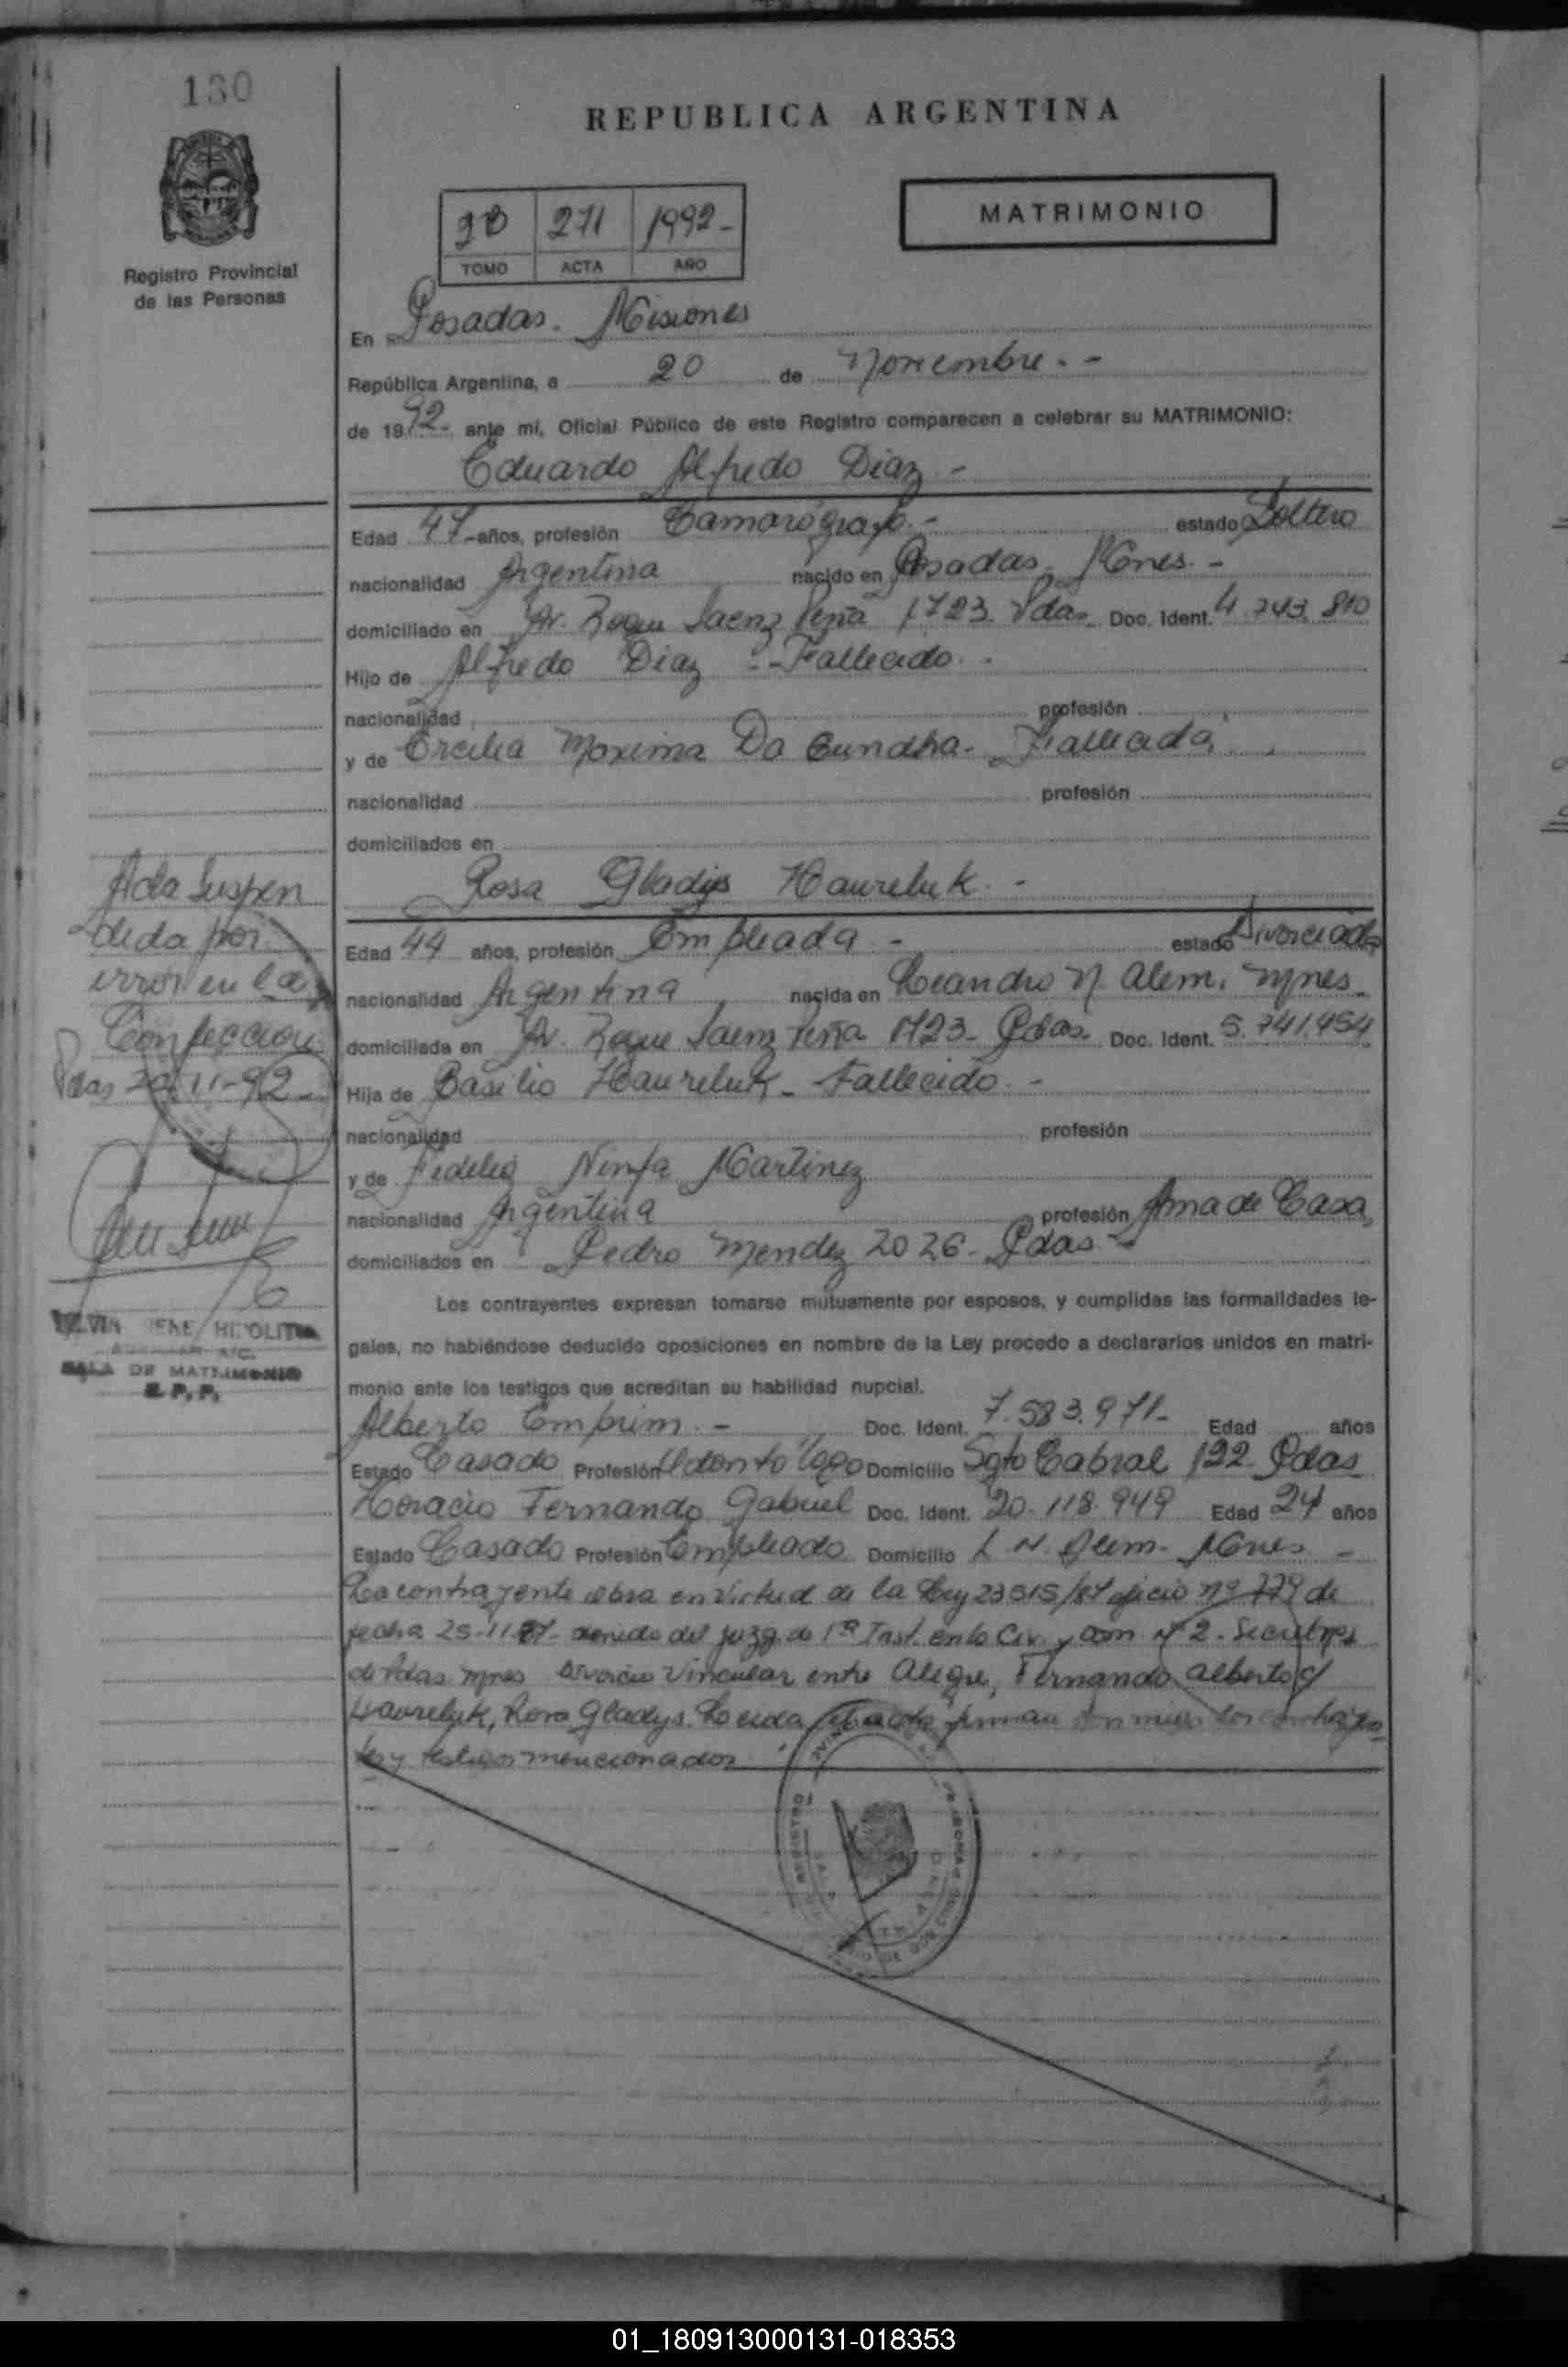 130
REPUBLICA ARGENTINA
MATRIMONIO
271 1992-
TOMO ACTA AÑO
Registro Provincial
de las Personas
En Posadas. Misiones
República Argentina, a 20 de Noviembre.-
de 1992- ante mí, Oficial Público de este Registro comparecen a celebrar su MATRIMONIO:
Eduardo Alfredo Diaz -
Edad 47 -años, profesión Camarógrafo.- estado Soltero
nacionalidad Argentina nacido en Posadas, Mnes. -
domiciliado en Av. Roque Saenz Peña 1723. Pdas. Doc. Ident. 4.743.810
Hijo de Alfredo Diaz - Fallecido. -
nacionalidad profesión
y de Ercilia Maxima Da Cundha - Fallecida
nacionalidad profesión
domiciliados en
Rosa Gladys Haureluk. -
Edad 44 años, profesión Empleada - estado Divorciada
nacionalidad Argentina nacida en Leandro N. Alem. Mnes.
domiciliada en Av. Roque Saenz Peña 1723- Pdas. Doc. Ident. 5.741.454
Hija de Basilio Haureluk - Fallecido. -
nacionalidad profesión
y de Fidelia Ninfa Martinez
nacionalidad Argentina profesión Ama de Casa,
domiciliados en Pedro Mendez 2026- Pdas -
Los contrayentes expresan tomarse mutuamente por esposos, y cumplidas las formalidades le-
gales, no habiéndose deducido oposiciones en nombre de la Ley procedo a declararlos unidos en matri-
monio ante los testigos que acreditan su habilidad nupcial.
Alberto Comprim. - Doc. Ident. 7.583.971- Edad años
Estado Casado Profesión Odontologo Domicilio Sgto Cabral 122 Pdas
Horacio Fernando Gabriel Doc. Ident. 20.118.949 Edad 24 años
Estado Casado Profesión Empleado Domicilio L. N. Alem- Mnes -
La contrayente obra en virtud de la Ley 23515/87 oficio nº 779 de
fecha 25-11-87- del juzg. de 1ª Inst. en lo Civ. y Com. nº 2.
de Pdas. Mnes Divorcio Vincular entre Alegre, Fernando Alberto c/
Haureluk, Rosa Gladys. Leida el acta firman con migo los contrayen
tes y testigos mencionados
Acta Suspen
dida por
error en la
Confeccion
Pdas 20-11-92-
SILVIA IRENE HIPOLITO
SALA DE MATRIMONIO
R. P. P.
01_180913000131-018353